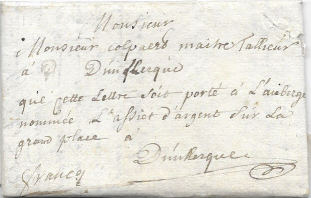 Monsieur
Monsieur colpaert maitre tallieur
à Dunkerque
que cette Lettre soit porté à L'auberge
nommée L'assiet d'argent sur La
grand place à
Dunkerque
francq